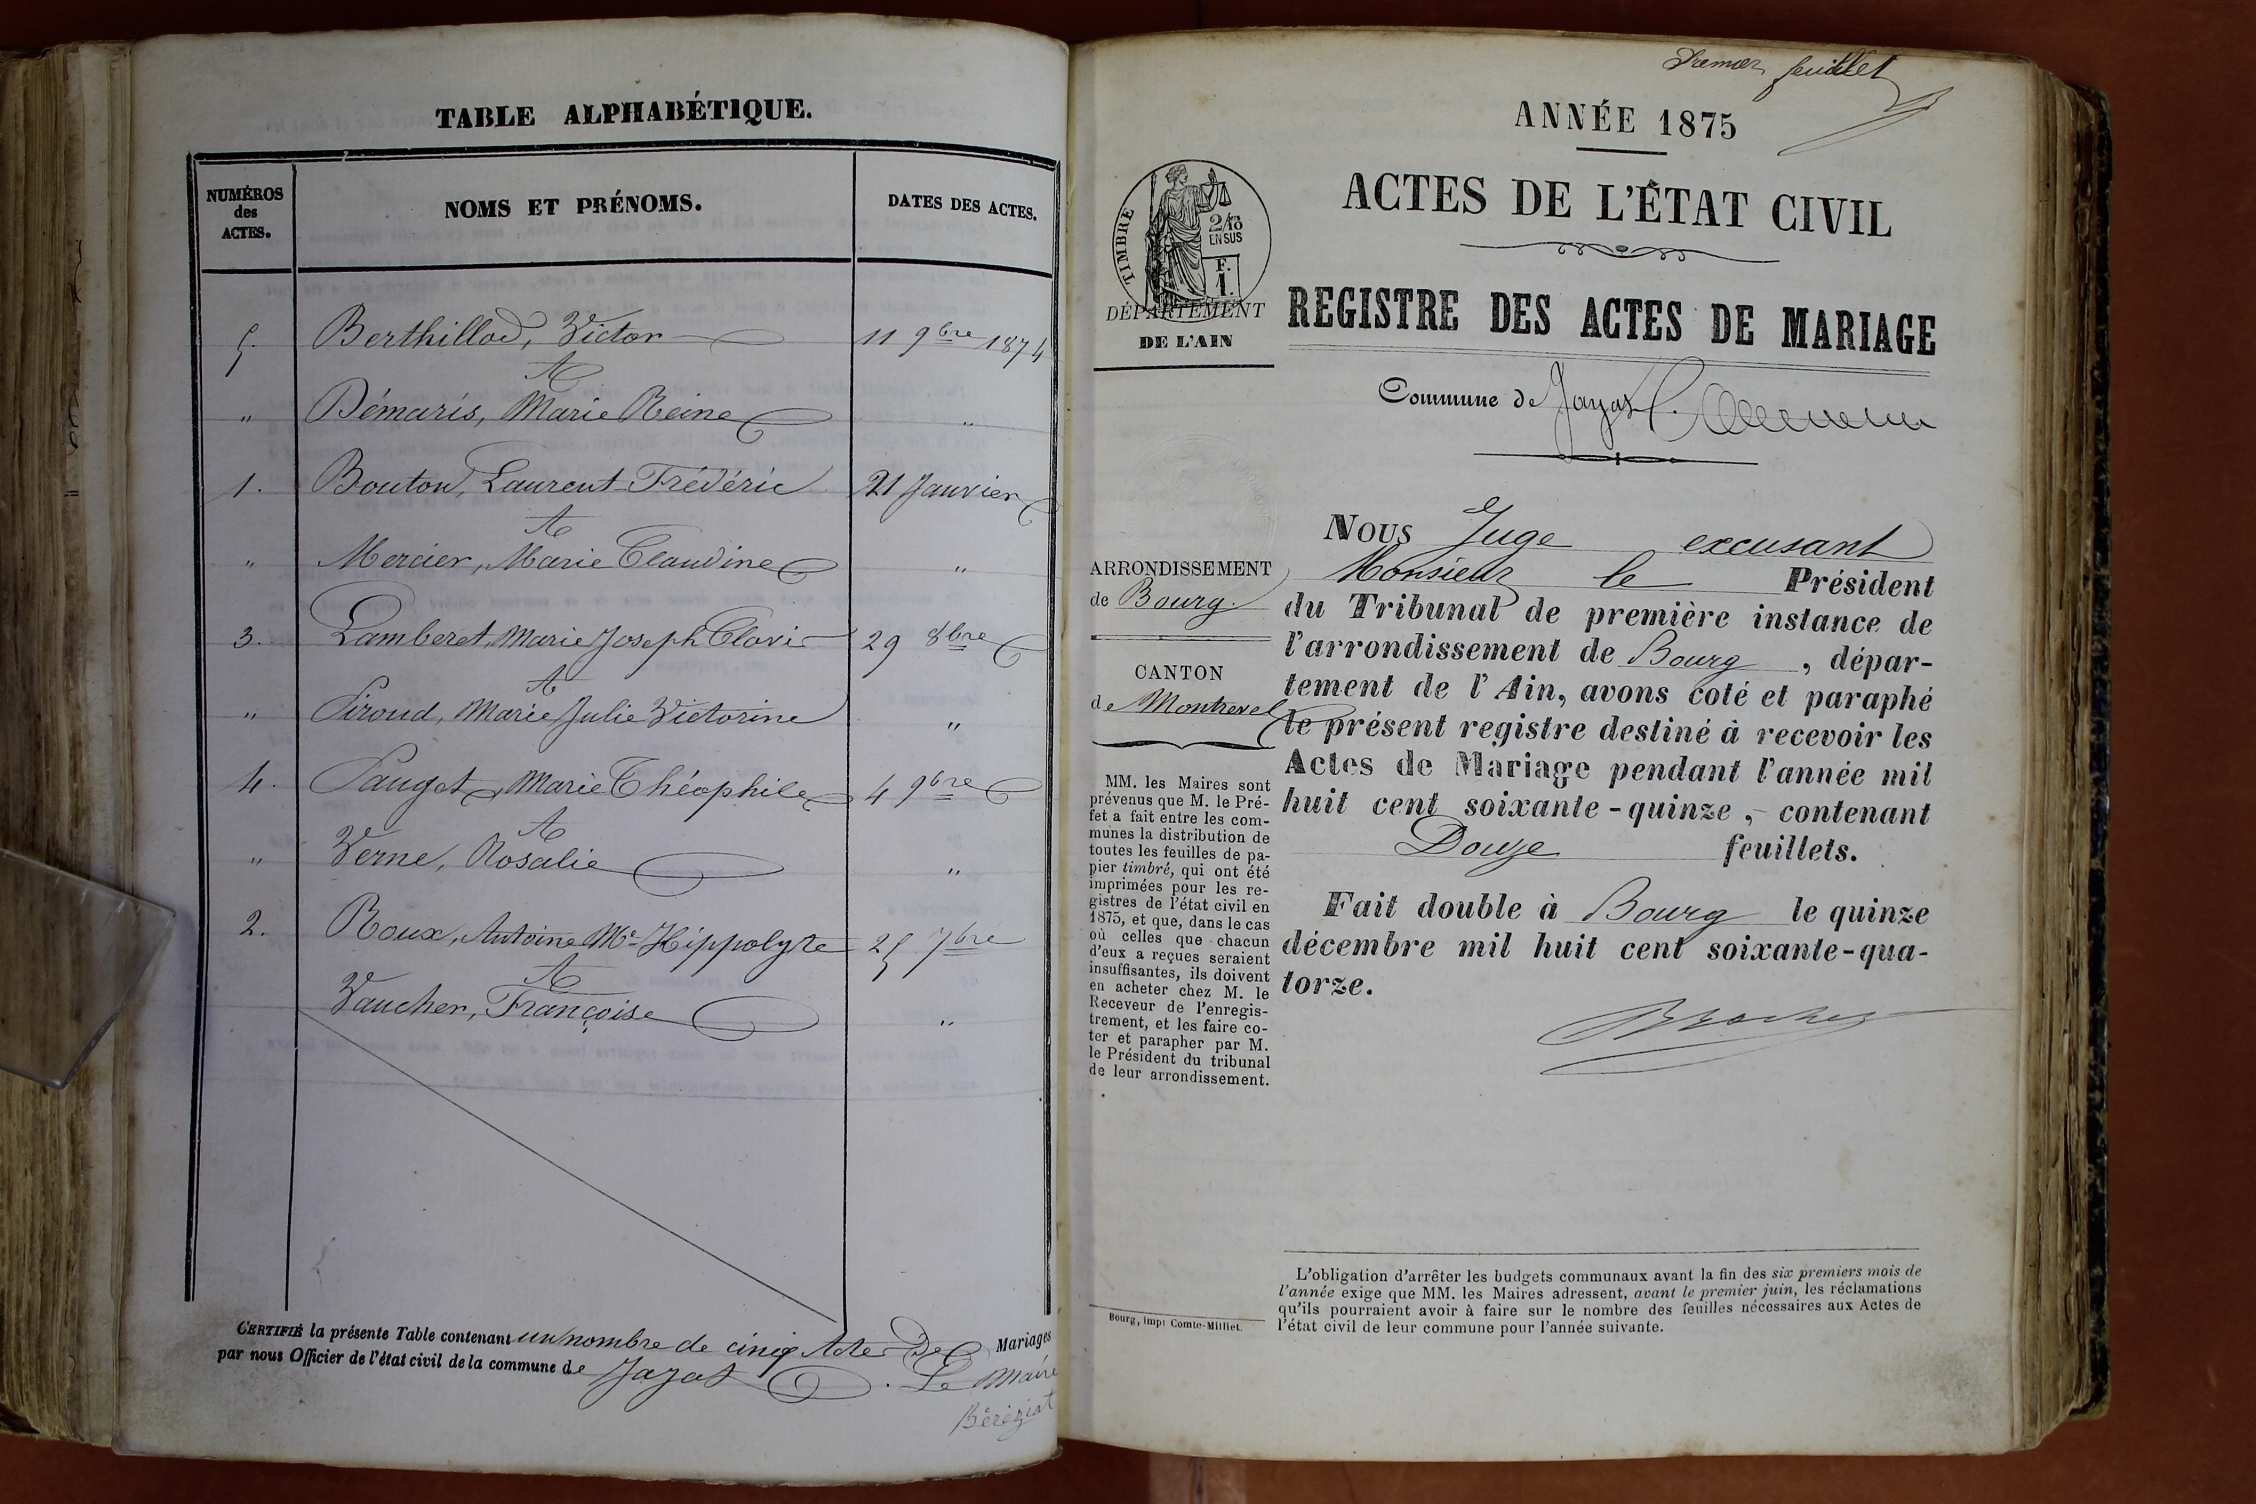 TABLE ALPHABÉTIQUE.
NUMÉROS des ACTES. NOMS ET PRÉNOMS. DATES DES ACTES.
5. Berthillod, Victor 11 9bre 1874
A
" Démaris, Marie Reine "
1. Bouton, Laurent Frédéric 21 Janvier
A
" Mercier, Marie Claudine "
3. Lamberet, Marie Joseph Clovis 29 8bre
A
" Piroud, Marie Julie Victorine "
4. Pauget, Marie Théophile 4 9bre
A
" Verne, Rosalie "
2. Roux, Antoine Me Hippolyte 25 7bre
A
Vaucher, Françoise "
CERTIFIÉ la présente Table contenant un nombre de cinq Actes De Mariages
par nous Officier de l'état civil de la commune de Jayat. Le Maire
Béréziat
Premier feuillet
ANNÉE 1875
ACTES DE L'ÉTAT CIVIL
REGISTRE DES ACTES DE MARIAGE
TIMBRE
2/10
EN SUS
F.
1.
DÉPARTEMENT
DE L'AIN
Commune de Jayat
ARRONDISSEMENT
de Bourg.
CANTON
de Montrevel
MM. les Maires sont
prévenus que M. le Pré-
fet a fait entre les com-
munes la distribution de
toutes les feuilles de pa-
pier timbré, qui ont été
imprimées pour les re-
gistres de l'état civil en
1875, et que, dans le cas
où celles que chacun
d'eux a reçues seraient
insuffisantes, ils doivent
en acheter chez M. le
Receveur de l'enregis-
trement, et les faire co-
ter et parapher par M.
le Président du tribunal
de leur arrondissement.
Bourg, imp. Comte-Milliet.
NOUS Juge excusant
Monsieur le Président
du Tribunal de première instance de
l'arrondissement de Bourg, dépar-
tement de l'Ain, avons coté et paraphé
le présent registre destiné à recevoir les
Actes de Mariage pendant l'année mil
huit cent soixante-quinze, contenant
Douze feuillets.
Fait double à Bourg le quinze
décembre mil huit cent soixante-qua-
torze.
L'obligation d'arrêter les budgets communaux avant la fin des six premiers mois de
l'année exige que MM. les Maires adressent, avant le premier juin, les réclamations
qu'ils pourraient avoir à faire sur le nombre des feuilles nécessaires aux Actes de
l'état civil de leur commune pour l'année suivante.